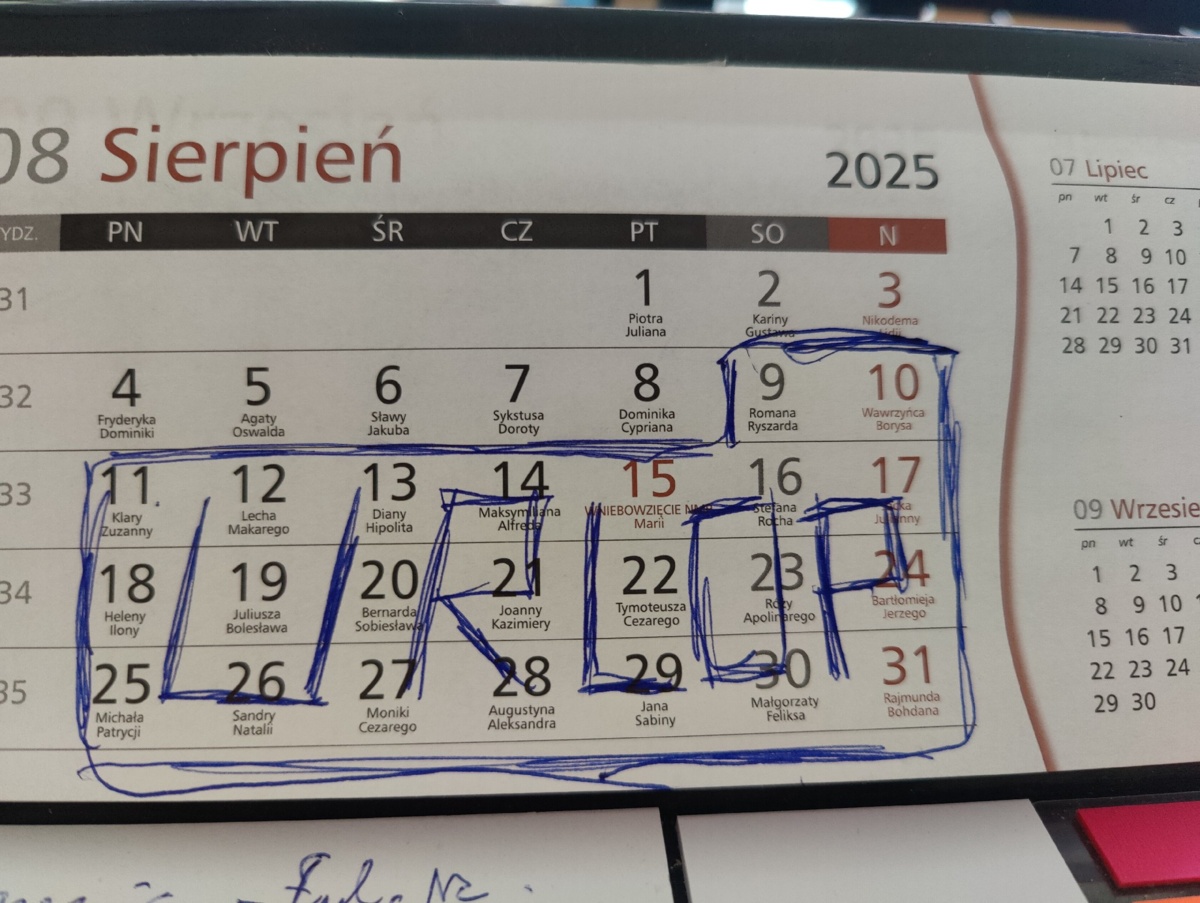 08 Sierpień 2025
YDZ. PN WT ŚR CZ PT SO N
31 1 2 3
Piotra Kariny Nikodema
Juliana Gustawa Lidii
32 4 5 6 7 8 9 10
Fryderyka Agaty Sławy Sykstusa Dominika Romana Wawrzyńca
Dominiki Oswalda Jakuba Doroty Cypriana Ryszarda Borysa
33 11 12 13 14 15 16 17
Klary Lecha Diany Maksymiliana WNIEBOWZIĘCIE NMP Stefana Jacka
Zuzanny Makarego Hipolita Alfreda Marii Rocha Julianny
URLOP
34 18 19 20 21 22 23 24
Heleny Juliusza Bernarda Joanny Tymoteusza Róży Bartłomieja
Ilony Bolesława Sobiesława Kazimiery Cezarego Apolinarego Jerzego
35 25 26 27 28 29 30 31
Michała Sandry Moniki Augustyna Jana Małgorzaty Rajmunda
Patrycji Natalii Cezarego Aleksandra Sabiny Feliksa Bohdana
07 Lipiec
pn wt śr cz
1 2 3
7 8 9 10
14 15 16 17
21 22 23 24
28 29 30 31
09 Wrzesie
pn wt śr c
1 2 3
8 9 10 1
15 16 17
22 23 24
29 30